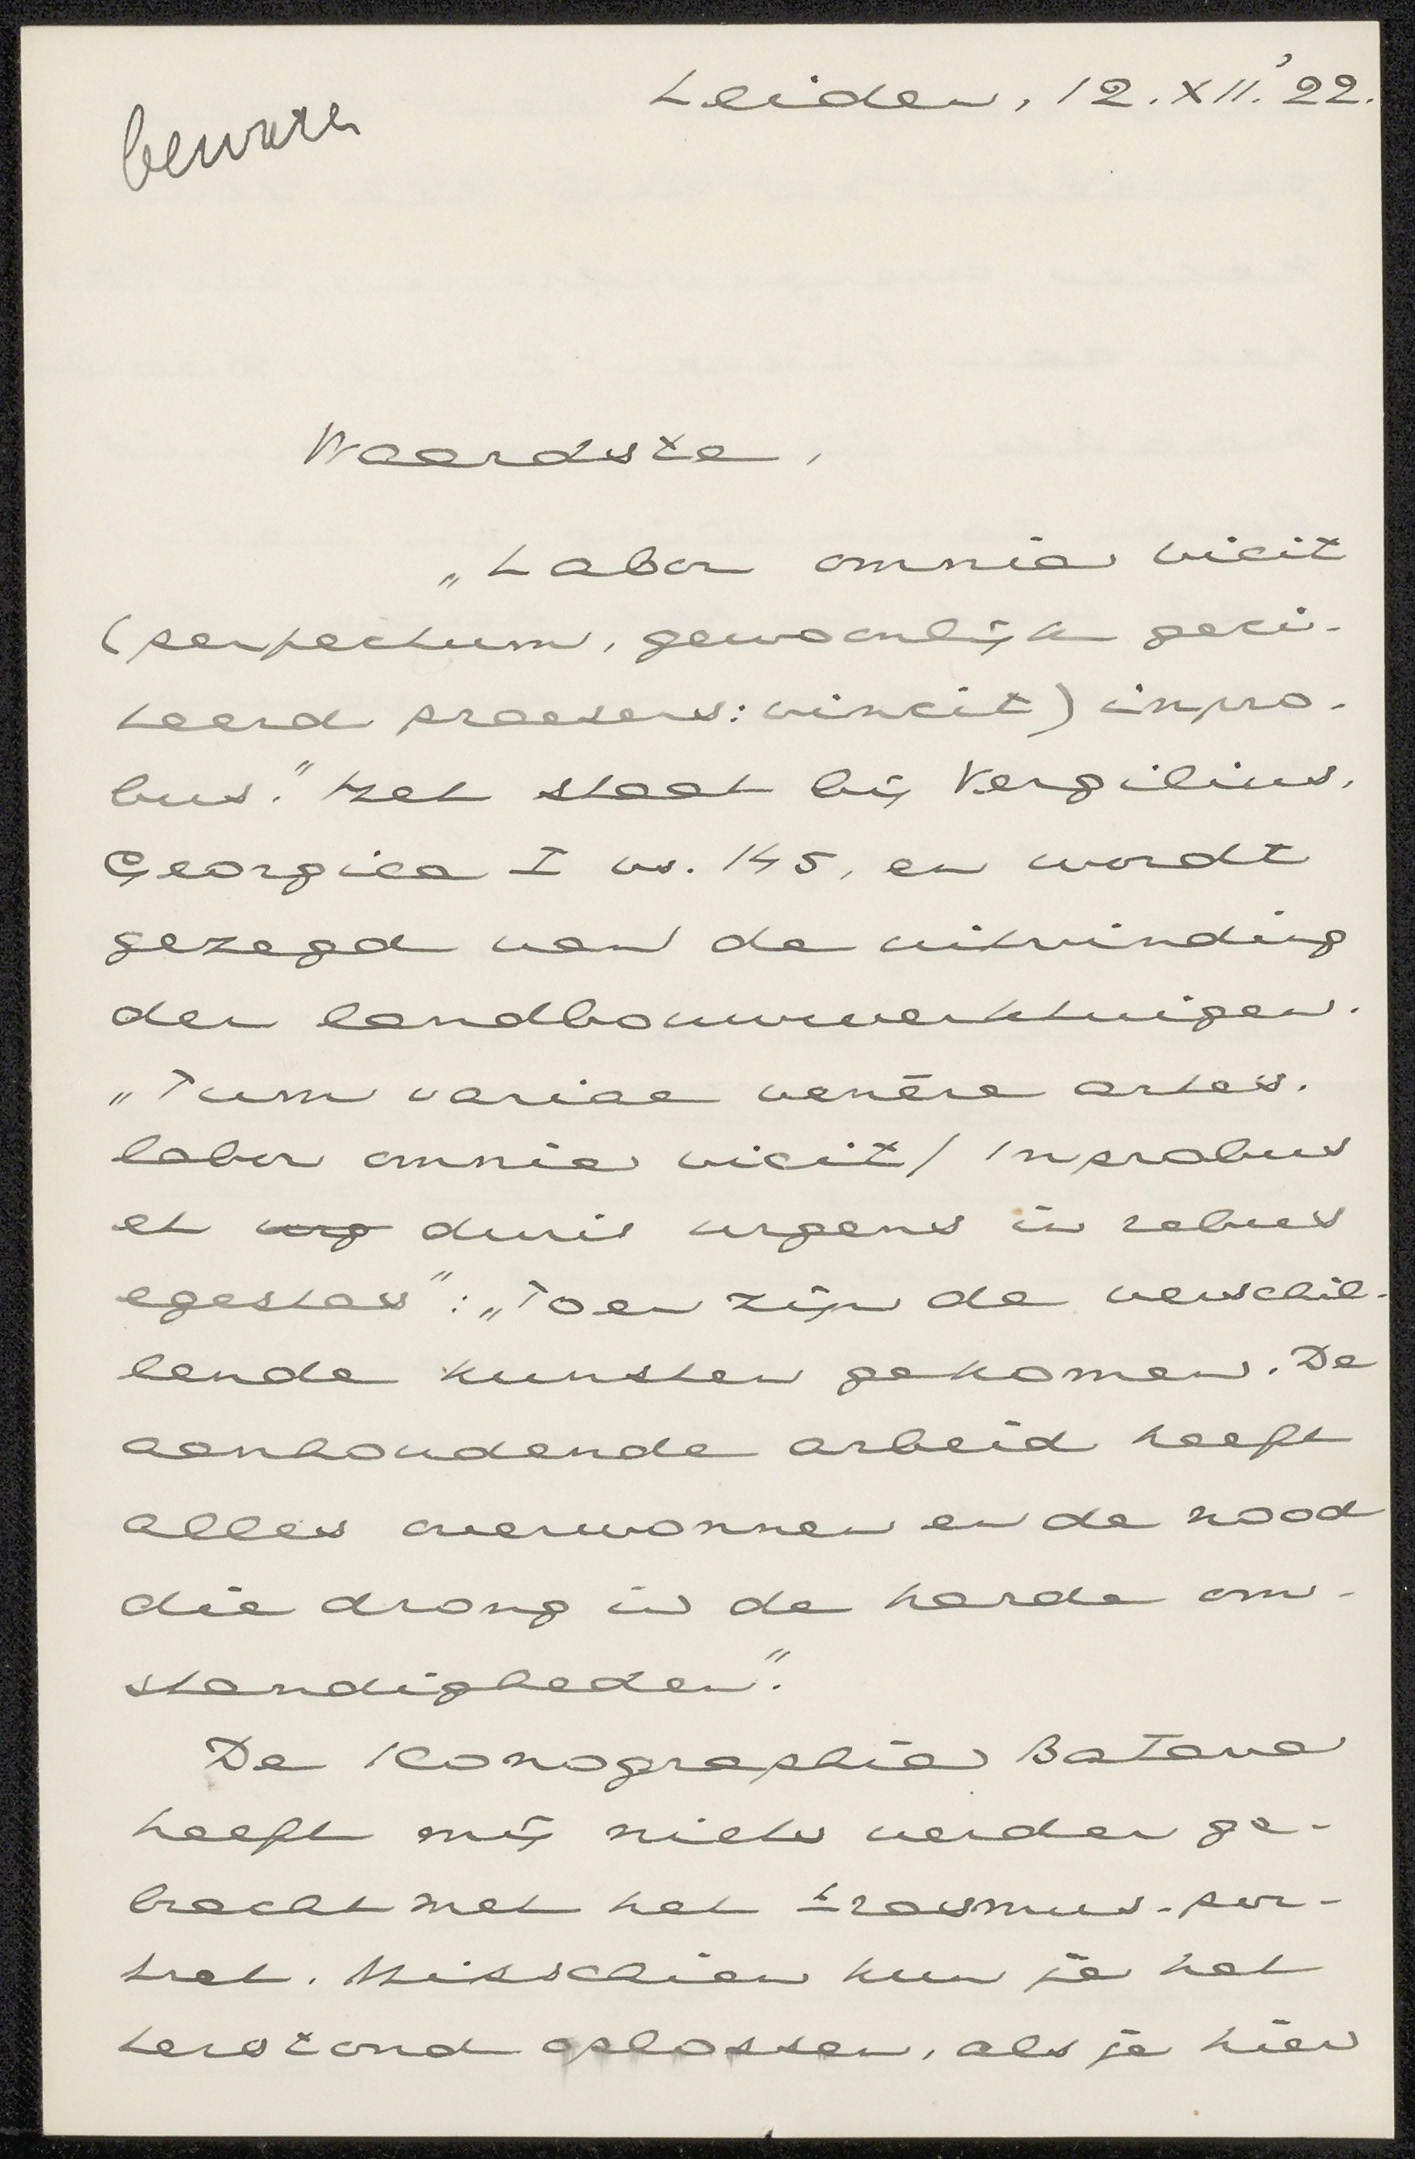 Leiden, 12.XII.'22.
bewaren
Waardste,
„Labor omnia vicit
(perfectum, gewoonlijk geci-
teerd praesens: vincit) inpro-
bus." Het staat bij Vergilius,
Georgica I vs. 145, en wordt
gezegd van de uitvinding
der landbouwwerktuigen.
„Tum variae venēre artes.
labor omnia vicit / Inprobus
et urg duris urgens in rebus
egestas": „Toen zijn de verschil-
lende kunsten gekomen. De
aanhoudende arbeid heeft
alles overwonnen en de nood
die drong in de harde om-
standigheden".
De Iconographia Batava
heeft mij niets verder ge-
bracht met het Erasmus-por-
tret. Misschien kun je het
terstond oplossen, als je hier